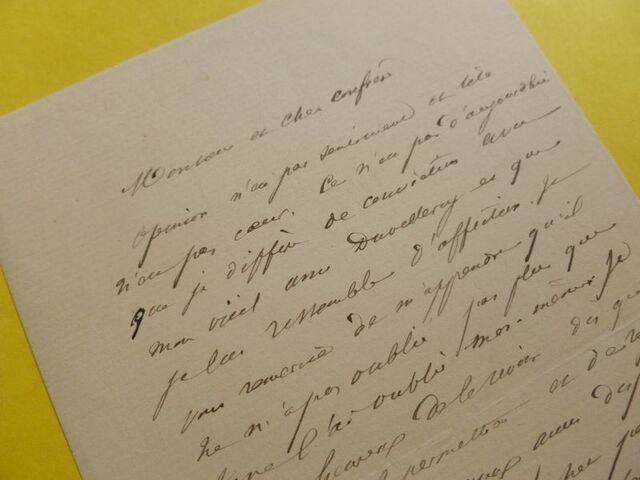 Monsieur et cher confrère
opinion n'est pas sentiment et tête
n'est pas cœur. Ce n'est pas d'aujourd'hui
que je diffère de conviction avec
mon vieil ami Duvelleroy et que
je lui ressemble d'affection. Je
vous remercie de m'apprendre qu'il
ne m'a pas oublié, pas plus que
je ne l'ai oublié moi-même. Je
heureux de le revoir dès que
permettra et de